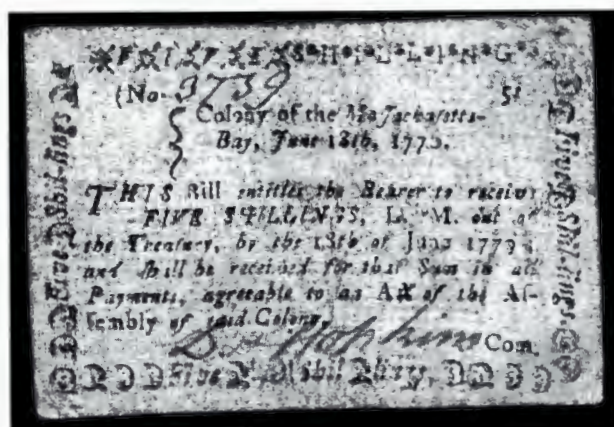 F*I*V*E*S*H*I*L*L*I*N*G*
(No 3739 5s
Colony of the Massachusetts-
Bay, June 18th, 1775.
THIS Bill entitles the Bearer to receive
FIVE SHILLINGS, L. M. out of
the Treasury, by the 18th of June 1779
and shall be received for that Sum in all
Payments, agreeable to an Act of the As-
sembly of said Colony.
Hopkins Com.
Five Shillings
Five Shillings
Five Shillings